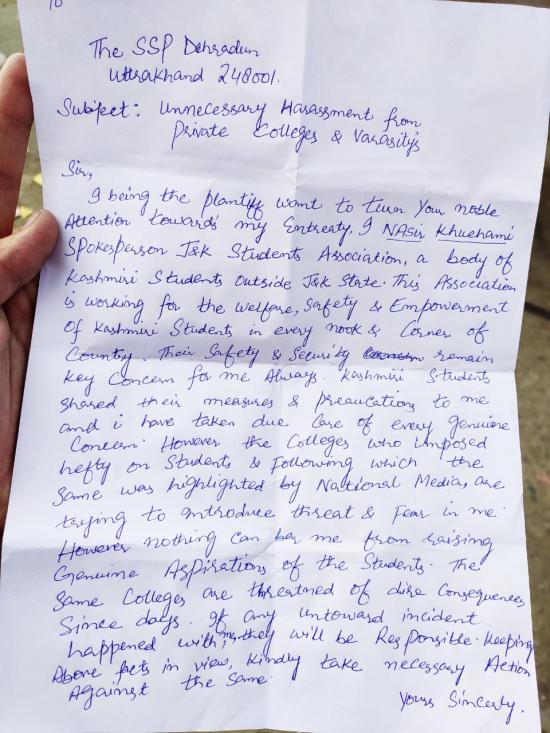 10
The SSP Dehradun
Uttrakhand 248001.
Subject: Unnecessary Harassment from
Private Colleges & Varasity's
Sir,
I being the plantiff want to turn Your noble
Attention towards my Entreaty. I NASir Khuehami
Spokesperson J&K Students Association, a body of
Kashmiri Students outside J&K State. This Association
is working for the welfare, Safety & Empowerment
Of Kashmiri Students in every nook & Corner of
Country. Their Safety & Security remain
key Concern for me Always. Kashmiri Students
Shared their measures & preaucations to me
and i have taken due Care of every genuine
Concern. However the Colleges who imposed
hefty on Students & Following which the
Same was highlighted by National Media, are
trying to introduce threat & Fear in me.
However nothing can bar me from raising
Genuine Aspirations of the Students. The
Same Colleges are threatned of dire Consequences
Since days. If any untoward incident
happened with me, they will be Responsible. Keeping
Above facts in view, Kindly take necessary Action
Against the Same.
Yours Sincerly.